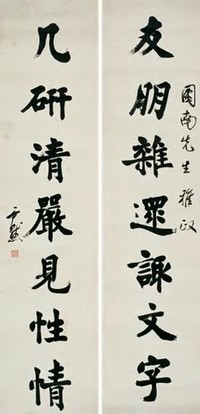 圖南先生雅政
友朋雜遝諏文字
几研清嚴見性情
尹默